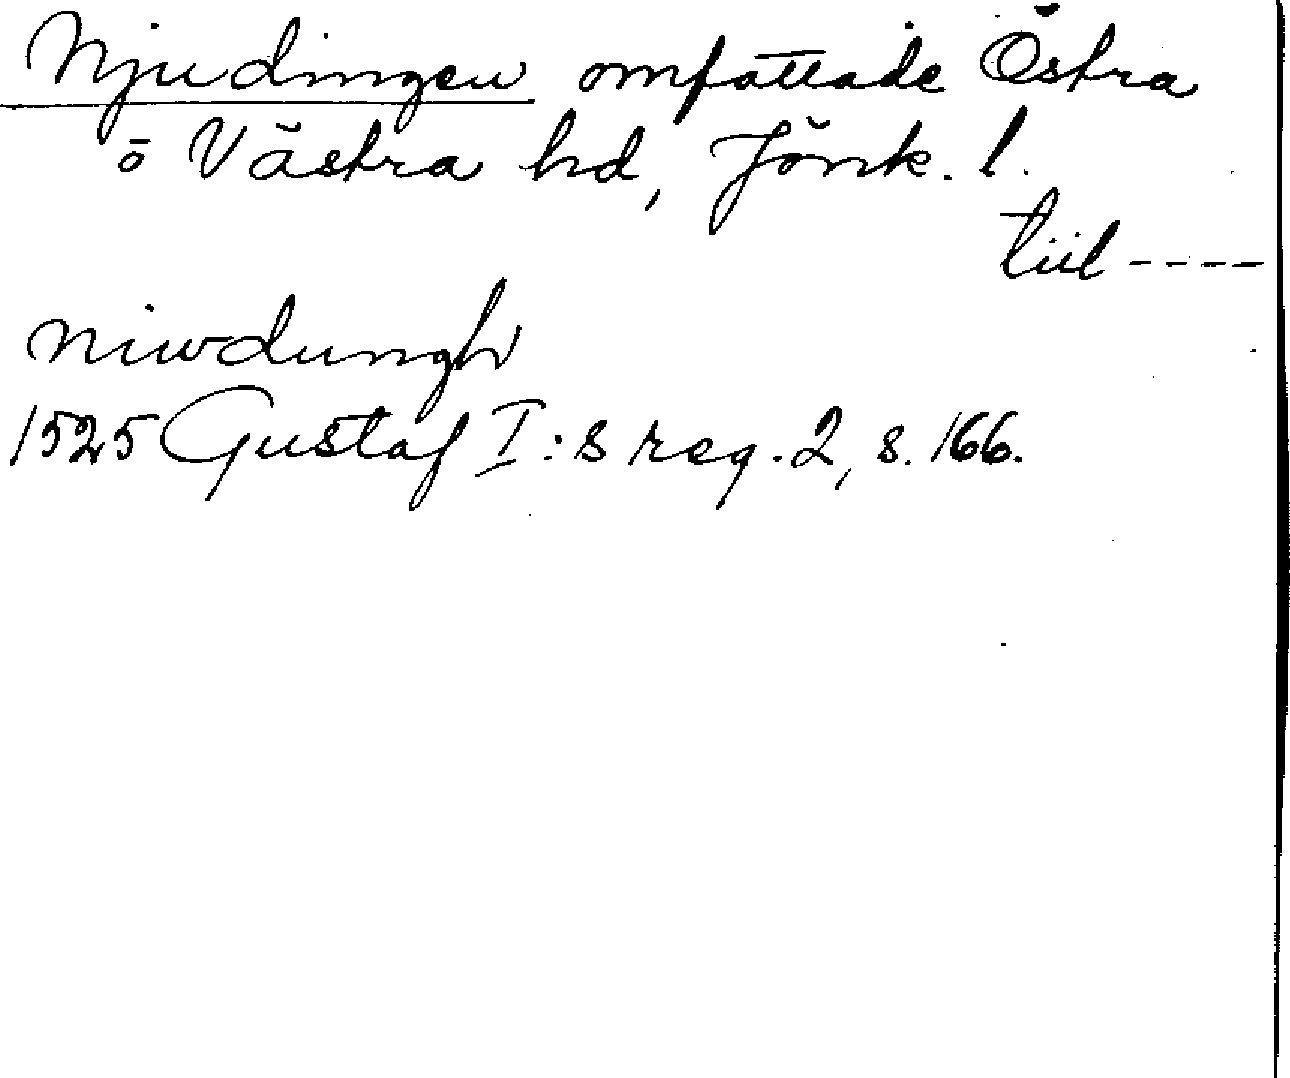 Njudingen omfattade Östra
o Västra hd, Jönk. l.
tiil ----
niwdungh
1525 Gustaf I:s reg. 2, s. 166.